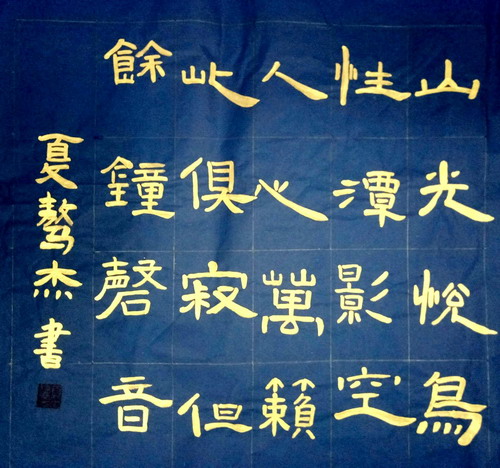 山光悦鳥
性潭影空
人心萬籟
此俱寂但
餘鐘磬音
夏驁杰書